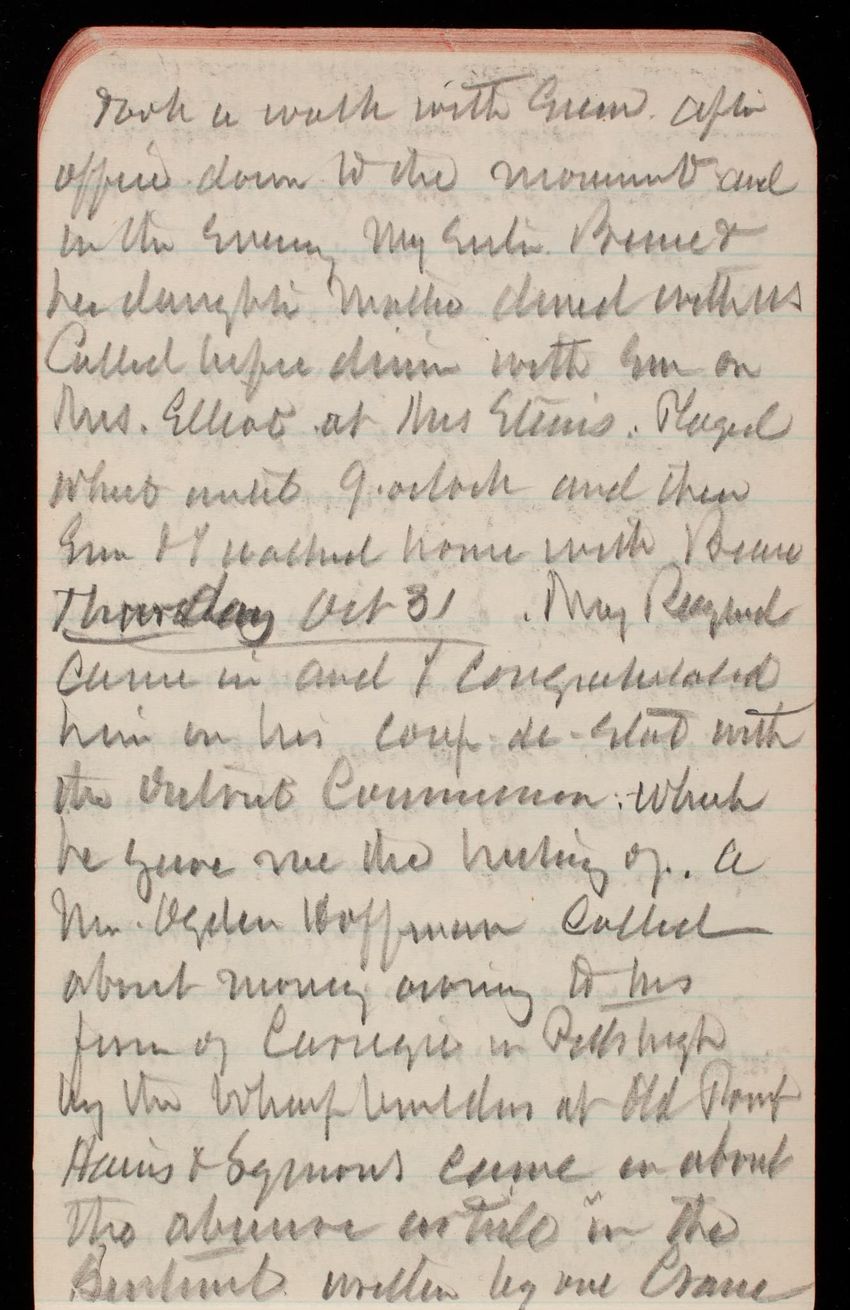 Took a walk with Evan. after
office down to the monument and
in the Evening Mrs Berrie &
her daughter Mattie dined with us
Called before dinner with Evan on
Mrs. Elliot at Mrs Played
whist until 9.oclock and then
Evan & I walked home with
Thursday Oct 31 . Maj Raymond
came in and I congratulated
him on his coup-de-etat with
the District Commission. Which
he gave me the history of. A
Mr. Ogden Hoffman Called
about money owing to his
firm of Carnegie in Pittsburgh
by the Wharf builders at Old Point
Hains & Symons came in about
the abusive article in the
Sentinel written by one Crane